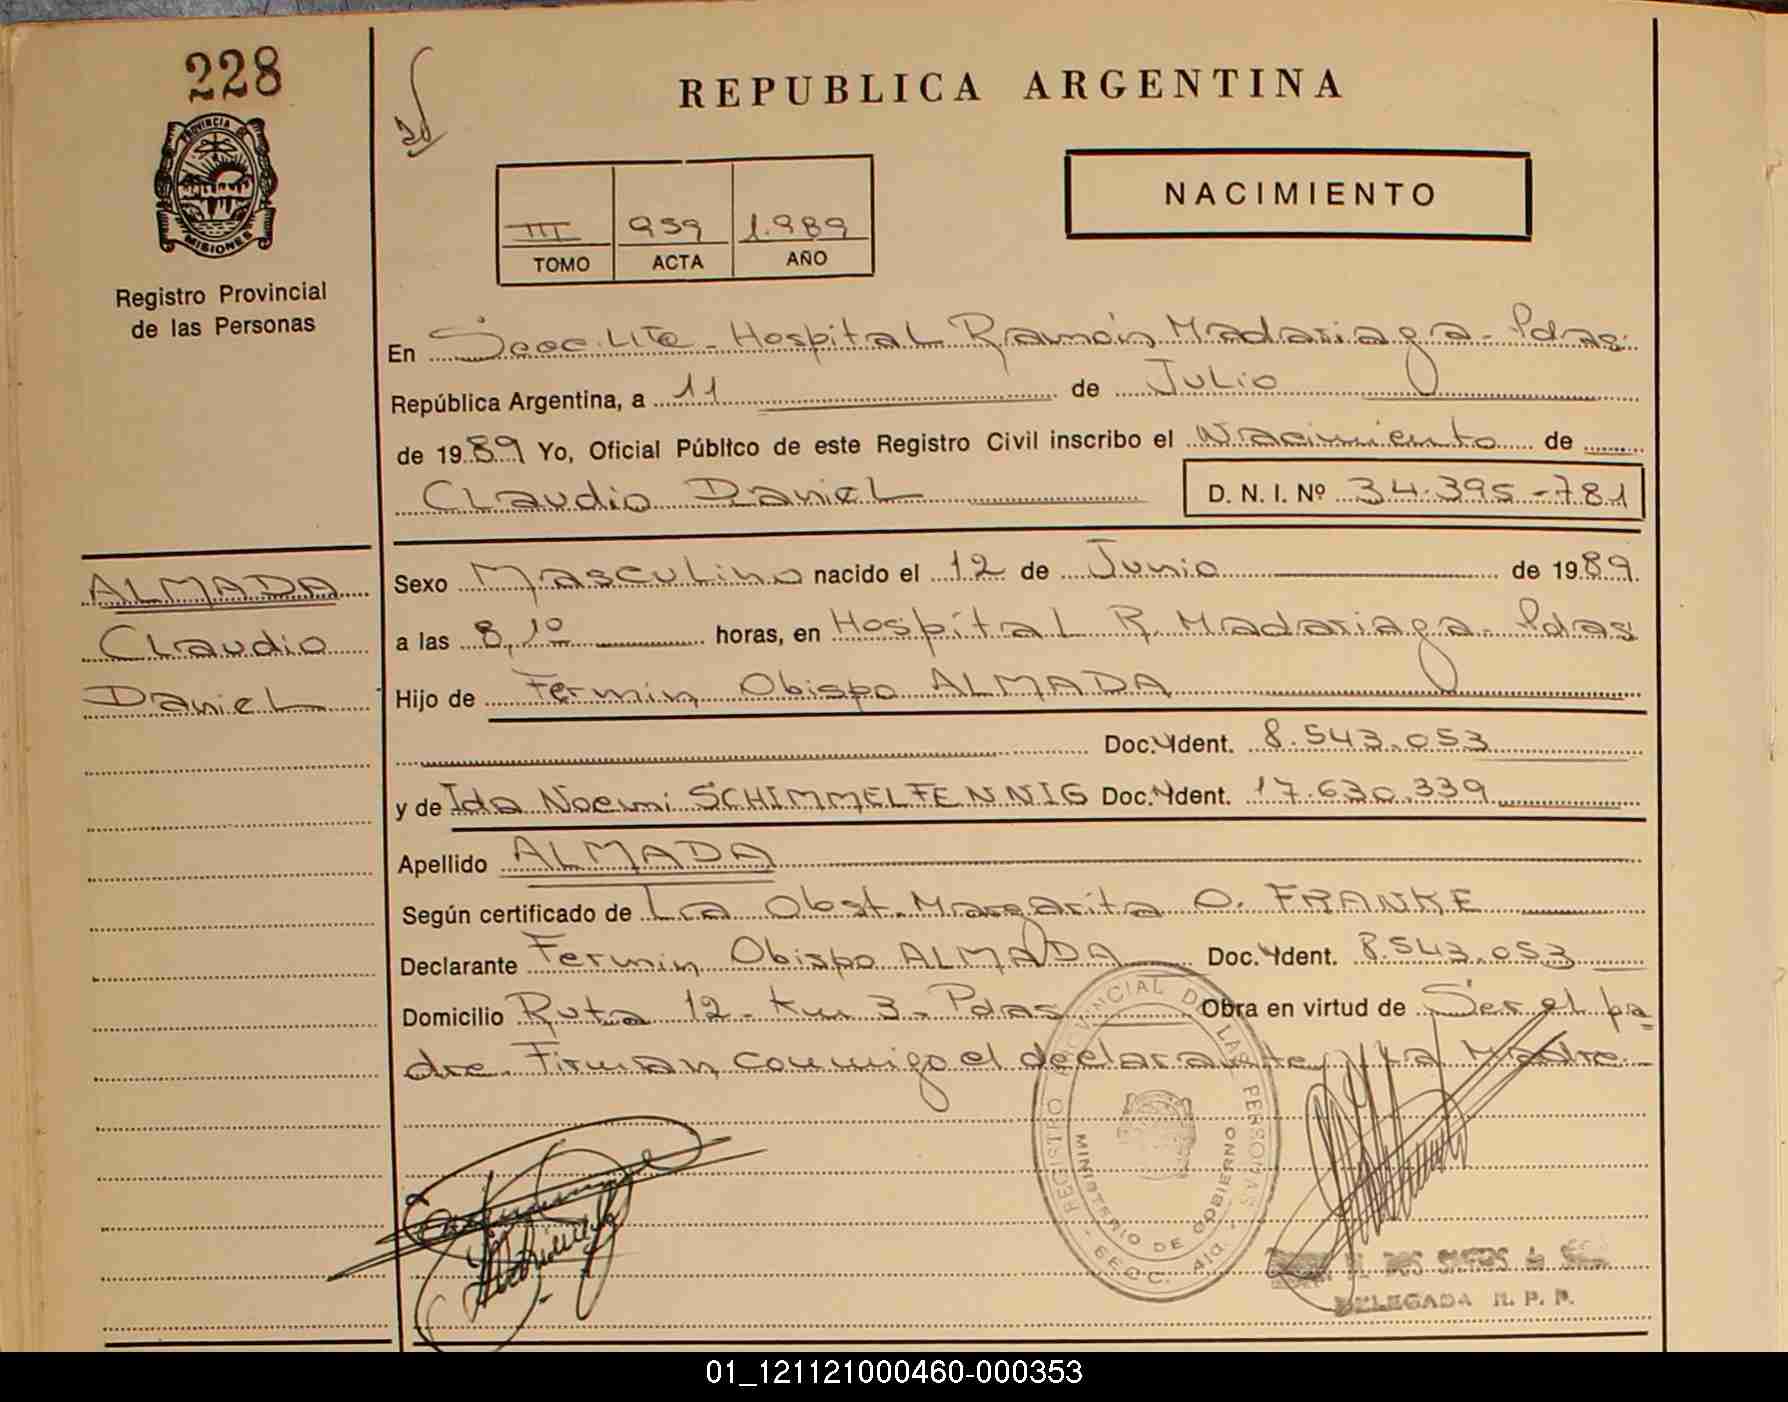 228
PROVINCIA DE
MISIONES
Registro Provincial
de las Personas
REPUBLICA ARGENTINA
NACIMIENTO
III 959 1.989
TOMO ACTA AÑO
En Secc. Hospital Ramón Madariaga - Pdas.
República Argentina, a 11 de Julio
de 1989 Yo, Oficial Público de este Registro Civil inscribo el Nacimiento de
Claudio Daniel D. N. I. Nº 34.395-781
ALMADA
Claudio
Daniel
Sexo Masculino nacido el 12 de Junio de 1989.
a las 8,10 horas, en Hospital R. Madariaga - Pdas
Hijo de Fermin Obispo ALMADA
Doc. Ydent. 8.543.053
y de Ida Noemi SCHIMMELFENNIG Doc. Ydent. 17.630.339
Apellido ALMADA
Según certificado de La Obst. Margarita O. FRANKE
Declarante Fermin Obispo ALMADA Doc. Ydent. 8.543.053
Domicilio Ruta 12 - Km 3 - Pdas Obra en virtud de Ser el pa
dre. Firman conmigo el declarante y la Madre.-
REGISTRO PROVINCIAL DE LAS PERSONAS
MINISTERIO DE GOBIERNO
DELEGADA R. P. P.
01_121121000460-000353